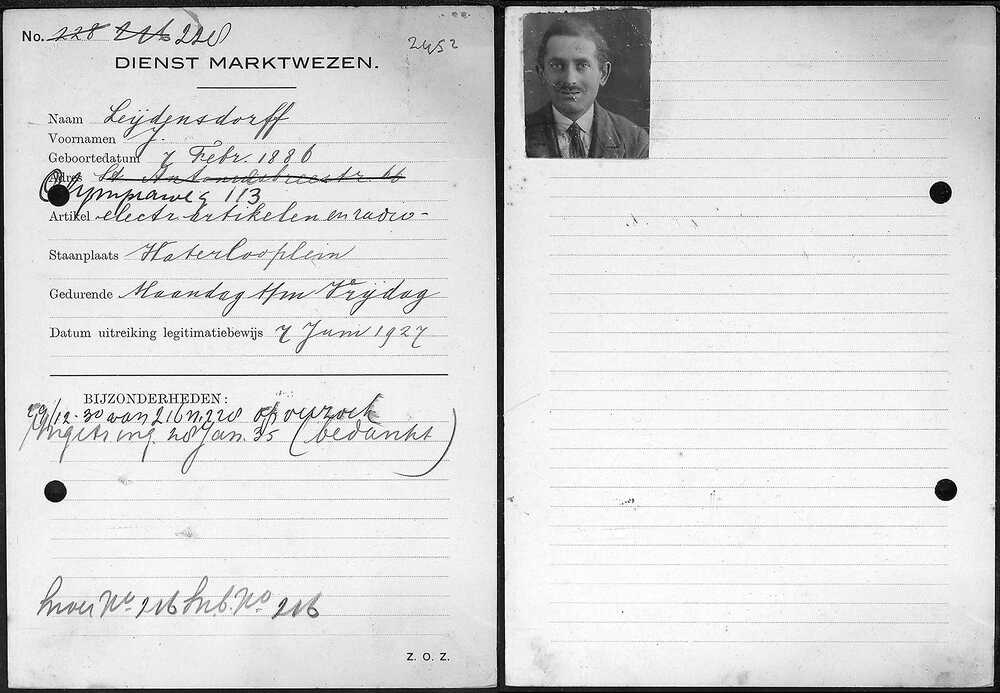 No. 228 216 228
2452
DIENST MARKTWEZEN.
Naam Leijdensdorff
Voornamen J.
Geboortedatum 7 Febr. 1886
Adres St. Antoniesbreestr. 66
Olympiaweg 113
Artikel electr. artikelen en radio-
Staanplaats Waterlooplein
Gedurende Maandag t/m Vrijdag
Datum uitreiking legitimatiebewijs 7 Juni 1927
BIJZONDERHEDEN:
29/12-30 van 216 n. 228 op verzoek
Ingetr. ing. 28 Jan. 35 (bedankt)
No. 216 No. 216
Z. O. Z.